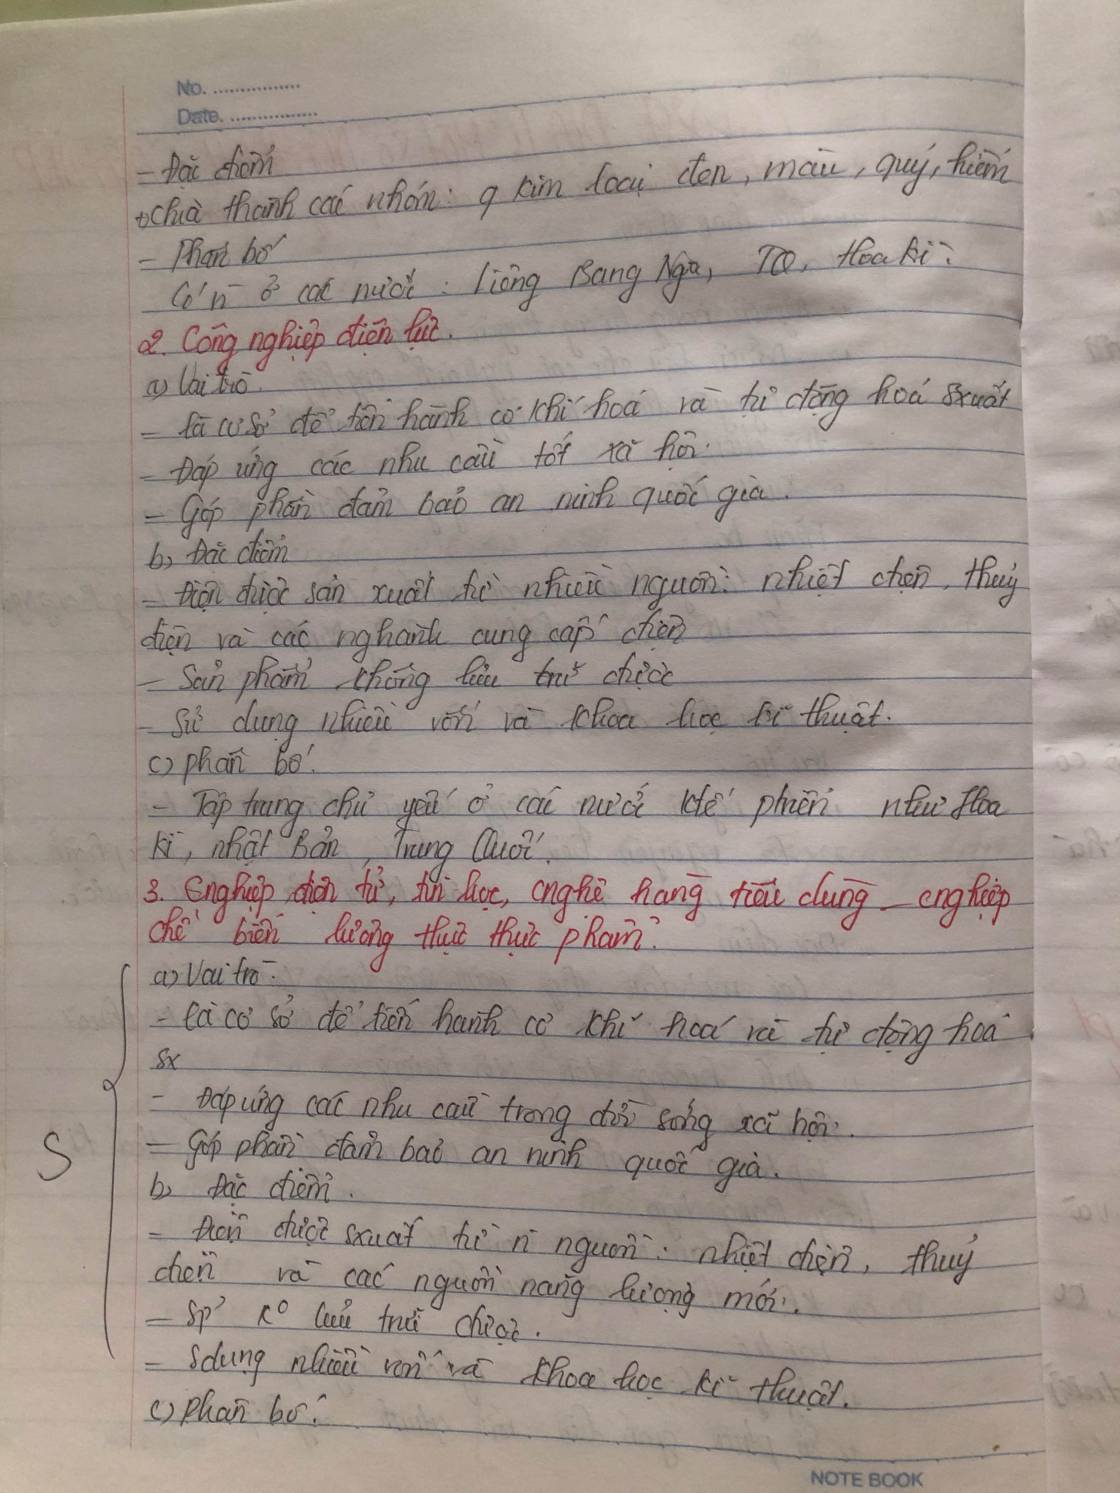 No. ................
Date. ................
- Đặc điểm
+ chia thành các nhóm: q kim loại đen, màu, quý, hiếm
- Phân bố
Có n ở các nước: Liông Bang Nga, TQ, Hoa Kì.
2. Công nghiệp điện lực.
a) Vai trò.
- Là cơ sở để tiến hành cơ khí hoá và tự động hoá sxuất
- Đáp ứng các nhu cầu tốt xã hội.
- Góp phần đảm bảo an ninh quốc gia.
b, Đặc điểm
- Điện được sản xuất từ nhiều nguồn: nhiệt điện, thuỷ
điện và các nghành cung cấp điện
- Sản phẩm không lưu trữ được
- Sử dụng nhiều vốn và khoa học kĩ thuật.
c) phân bố.
- Tập trung chủ yếu ở các nước như Hoa
Kì, nhật Bản, Trung Quốc.
3. Cnghiệp điện tử, tin học, cnghê hàng tiêu dùng - cnghiệp
chế biến lương thực thực phẩm.
a) Vai trò.
- Là cơ sở để tiến hành cơ khí hoá và tự động hoá
sx
- Đáp ứng các nhu cầu trong đời sống xã hội.
- Góp phần đảm bảo an ninh quốc gia.
S
b, Đặc điểm.
- Điện được sxuất từ n nguồn: nhiệt điện, thuỷ
điện và các nguồn năng lượng mới.
- Sp k° lưu trữ được.
- Sdụng nhiều vốn và khoa học kĩ thuật.
c) phân bố.
NOTE BOOK